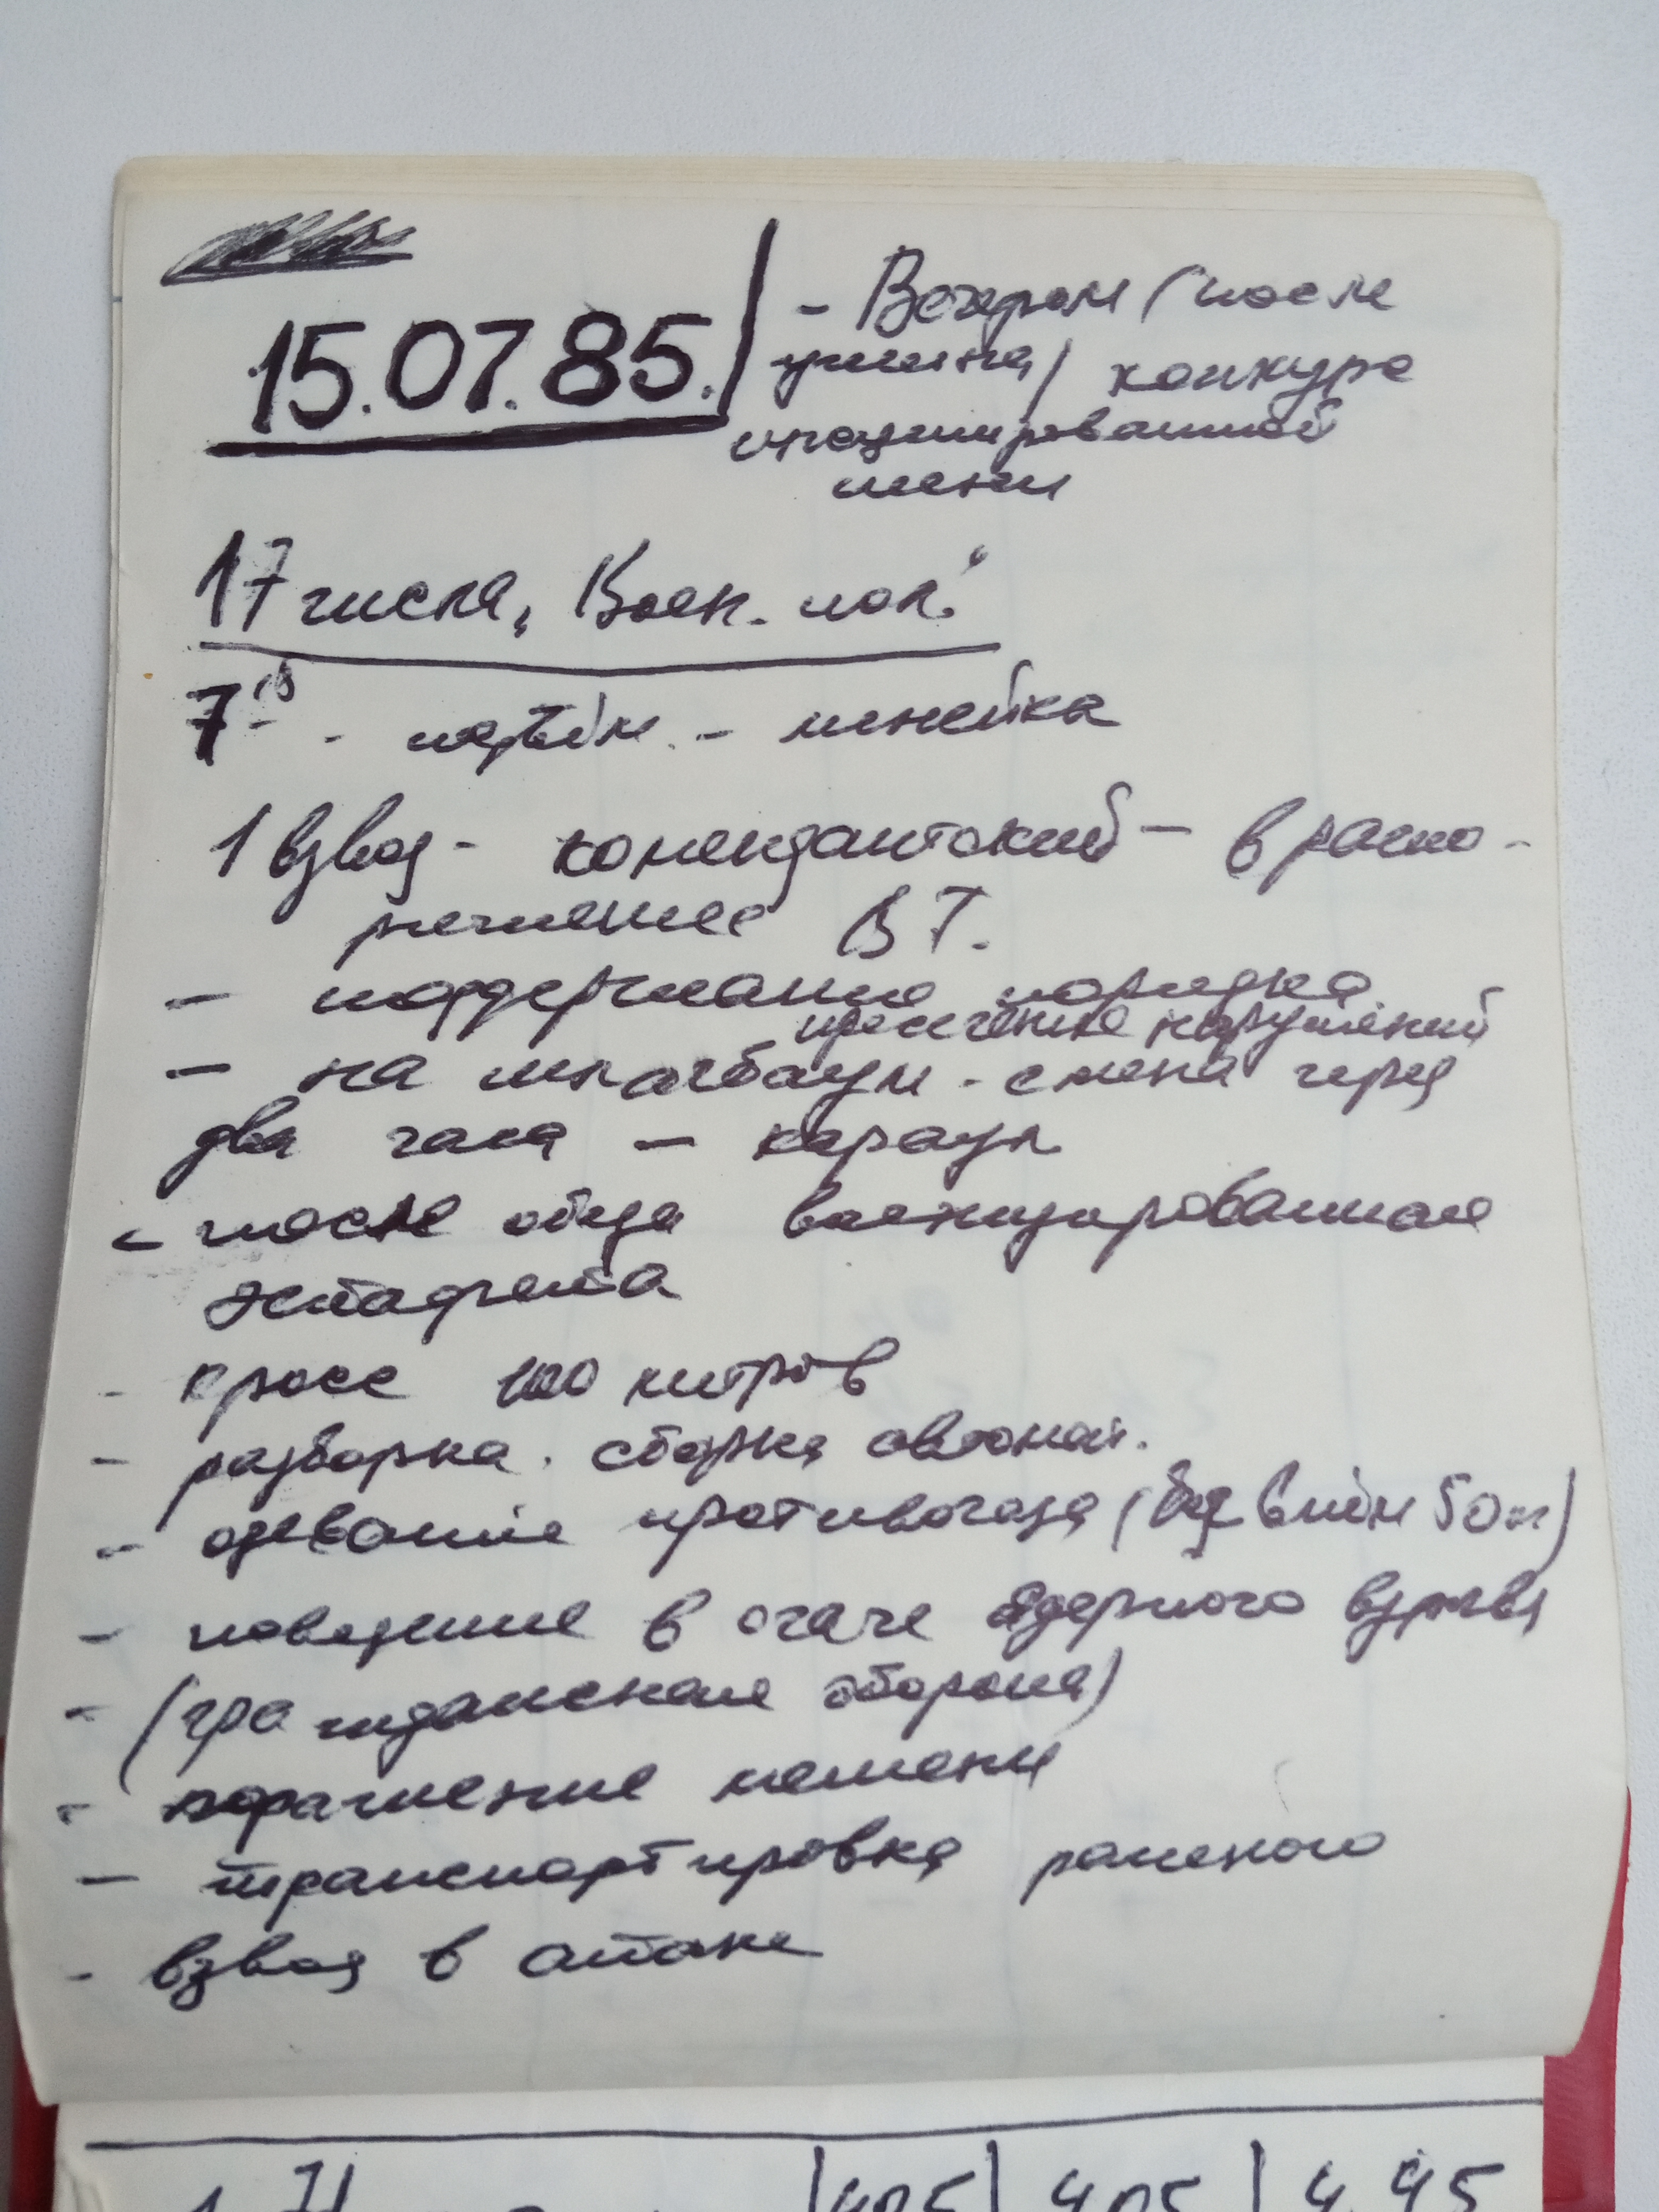 15.07.85.
- Вечером (после
ужина) конкурс
инсценированной
песни
17 числа „Воен. пол."
7 - подъём - линейка
1 взвод - комендантский - в распо-
ряжение ВТ.
- поддержание порядка
пресечение нарушений
- на шлагбаум - смена через
два часа - караул
- после обеда военизированная
эстафета
- кросс метров
- разборка. сборка автомат.
- одевание противогаза (без 50м)
- поведение в очаге ядерного взрыва
- (гражданская оборона)
- поражение мишени
- транспортировка раненого
- взвод в атаке